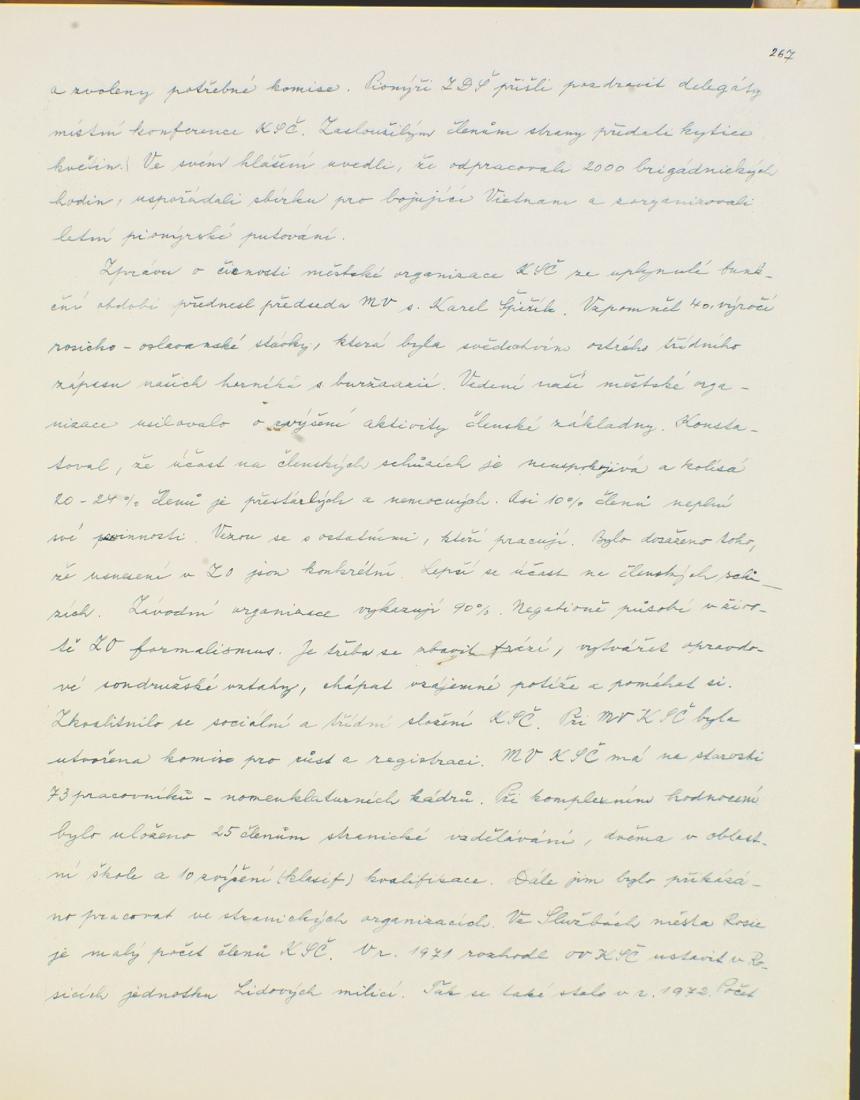 267
a zvoleny potřebné komise. Pionýři ZDŠ přišli pozdravit delegáty
místní konference KSČ. Zasloužilým členům strany předali kytice
květin. Ve svém hlášení uvedli, že odpracovali 2000 brigádnických
hodin, uspořádali sbírku pro bojující Vietnam a zorganizovali
letní pionýrské putování.
Zprávu o činnosti městské organizace KSČ ze uplynulé funk-
ční období přednesl předseda MV s. Karel. Vzpomněl 40. výročí
rosicko-oslavanské stávky, která byla svědectvím ostrého třídního
zápasu našich horníků s buržoazií. Vedení naší městské orga-
nizace usilovalo o zvýšení aktivity členské základny. Konsta-
toval, že účast na členských schůzích je neuspokojivá a kolísá
20-24% členů je přestárlých a nemocných. Asi 10% členů neplní
své povinnosti. Vezou se s ostatními, kteří pracují. Bylo dosaženo toho,
že usnesení v ZO jsou konkrétní. Lepší se účast na členských schů-
zích. Závodní organizace vykazují 90%. Negativně působí v živo-
tě ZO formalismus. Je třeba se zbavit frází, vytvářet opravdo-
vé soudružské vztahy, chápat vzájemné potíže a pomáhat si.
Zkvalitnilo se sociální a třídní složení KSČ. Při MV KSČ byla
utvořena komise pro růst a registraci. MV KSČ má na starosti
73 pracovníků - nomenklaturních kádrů. Při komplexním hodnocení
bylo uloženo 25 členům stranické vzdělávání, dvěma v oblast-
ní škole a 10 zvýšení (klasif) kvalifikace. Dále jim bylo přikázá-
no pracovat ve stranických organizacích. Ve Službách města Rosic
je malý počet členů KSČ. V r. 1971 rozhodl OV KSČ ustavit v Ro-
sicích jednotku Lidových milicí. Tak se také stalo v r. 1972. Počet